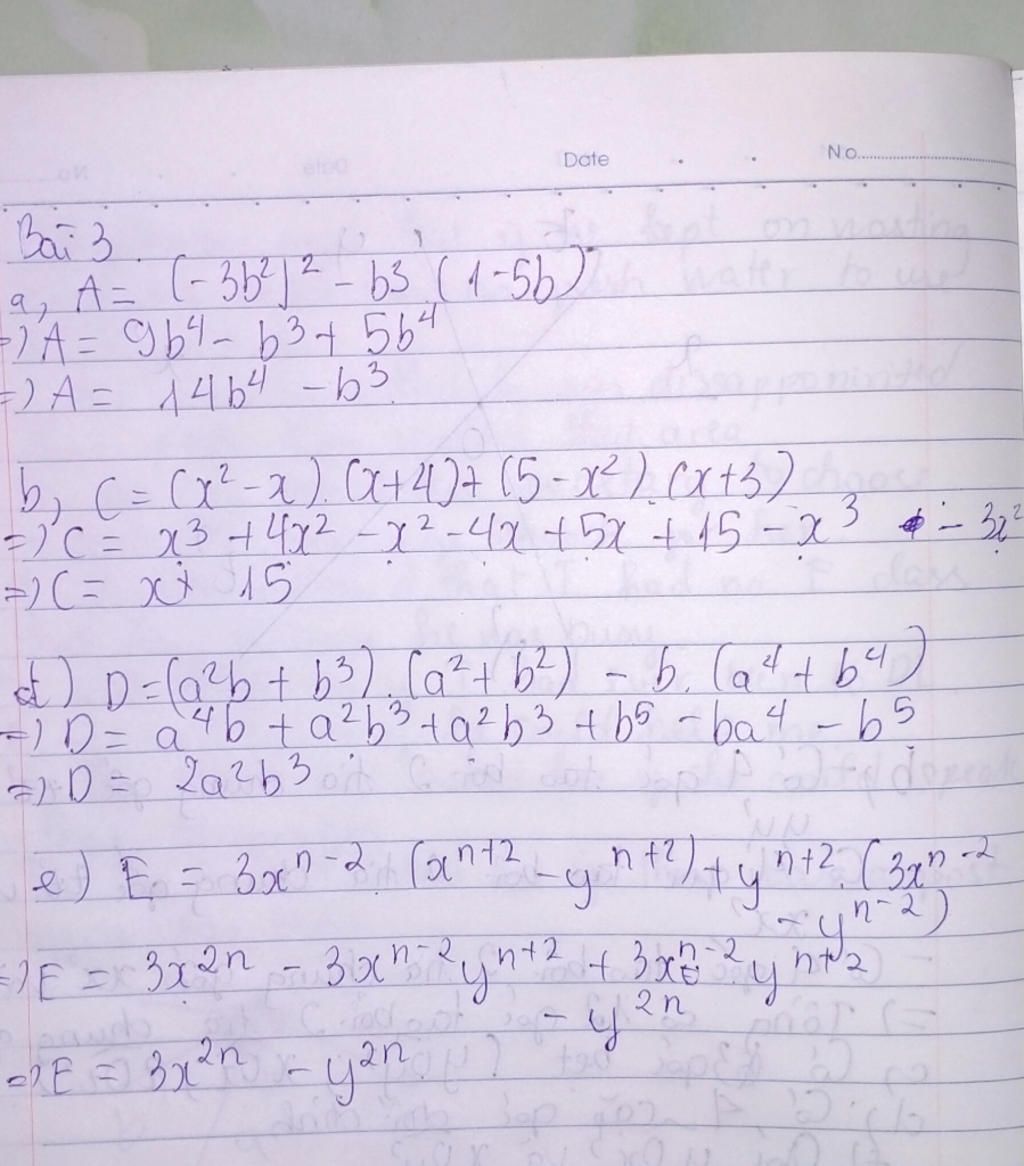 Date . . No..........
Bài 3.
a, A = (-3b²)² - b3 (1-5b)
=) A = 9b⁴ - b³ + 5b⁴
=) A = 14b⁴ - b³
b, C = (x² - x). (x+4) + (5 - x²). (x+3)
=) C = x³ + 4x² - x² - 4x + 5x + 15 - x³ - 3x²
=) C = x + 15
d) D = (a²b + b³). (a² + b²) - b. (a⁴ + b⁴)
=) D = a⁴b + a²b³ + a²b³ + b⁵ - ba⁴ - b⁵
=) D = 2a²b³
e) E = 3xⁿ⁻². (xⁿ⁺² - yⁿ⁺²) + yⁿ⁺². (3xⁿ⁻²
- yⁿ⁻²)
=) E = 3x²ⁿ - 3xⁿ⁻²yⁿ⁺² + 3xⁿ⁻².yⁿ⁺²
- y²ⁿ
=) E = 3x²ⁿ - y²ⁿ